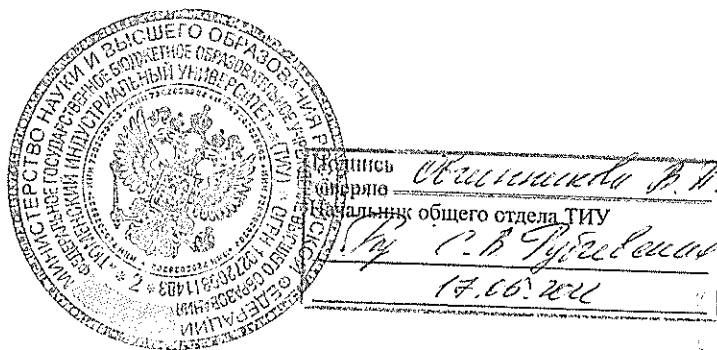 МИНИСТЕРСТВО НАУКИ И ВЫСШЕГО ОБРАЗОВАНИЯ РОССИЙСКОЙ ФЕДЕРАЦИИ
ФЕДЕРАЛЬНОЕ ГОСУДАРСТВЕННОЕ БЮДЖЕТНОЕ ОБРАЗОВАТЕЛЬНОЕ УЧРЕЖДЕНИЕ ВЫСШЕГО ОБРАЗОВАНИЯ
"ТЮМЕНСКИЙ ИНДУСТРИАЛЬНЫЙ УНИВЕРСИТЕТ" (ТИУ) * ОГРН 1027200811483 * 2 *
Подпись Овчинникова В.П.
заверяю
Начальник общего отдела ТИУ
С.В.
17.05.2022